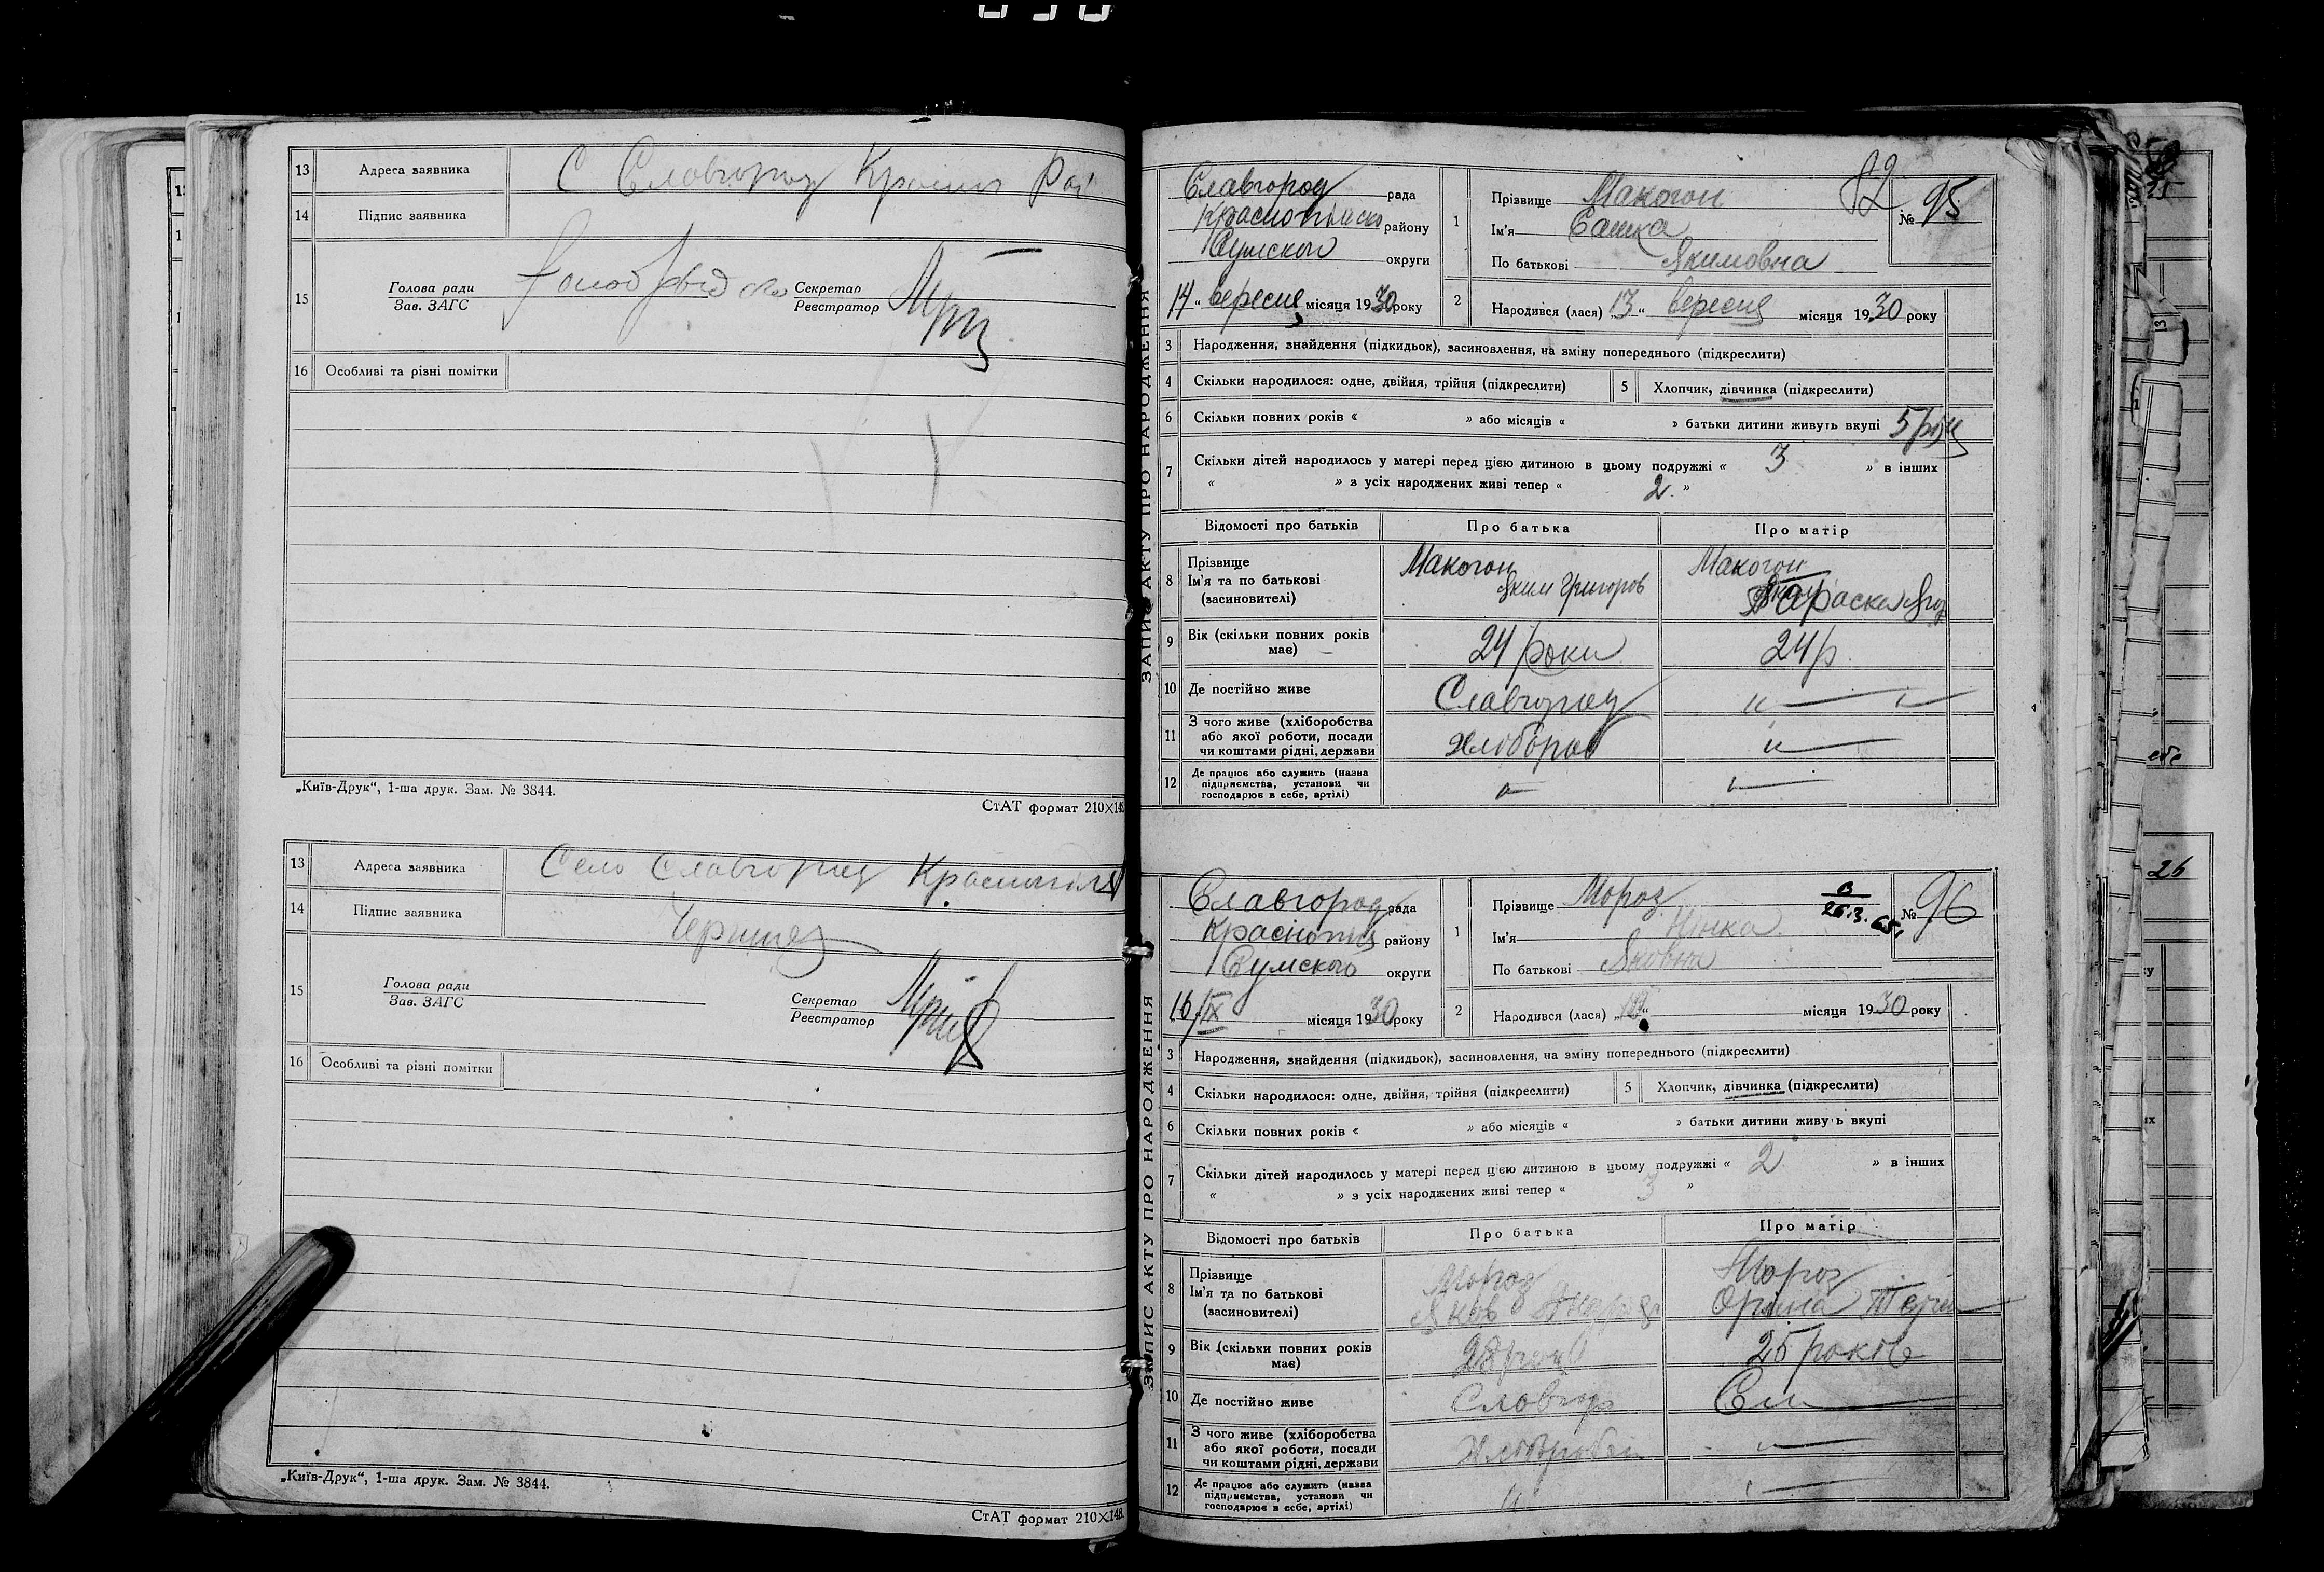 13 Адреса заявника С Славгород Красноп Рай
14 Підпис заявника
15 Голова ради
Зав. ЗАГС
Секретар
Реєстратор
16 Особливі та різні помітки
„Київ-Друк“, 1-ша друк. Зам. № 3844.
СтАТ формат 210×148
13 Адреса заявника Село Славгород Краснопілля
14 Підпис заявника
15 Голова ради
Зав. ЗАГС
Секретар
Реєстратор
16 Особливі та різні помітки
„Київ-Друк“, 1-ша друк. Зам. № 3844.
СтАТ формат 210×148.
ЗАПИС АКТУ ПРО НАРОДЖЕННЯ
82
№ 95
Славгород рада
району
Сумской округи
14 „ вересня місяця 1930 року
1 Прізвище Макогон
Ім'я Сашка
По батькові Якимовна
2 Народився (лася) 13 “ вересня місяця 1930 року
3 Народження, знайдення (підкидьок), засиновлення, на зміну попереднього (підкреслити)
4 Скільки народилося: одне, двійня, трійня (підкреслити) 5 Хлопчик, дівчинка (підкреслити)
6 Скільки повних років « » або місяців « » батьки дитини живуть вкупі 5 роц
7 Скільки дітей народилось у матері перед цією дитиною в цьому подружжі « 3 » в інших
« » з усіх народжених живі тепер « 2 »
Відомості про батьків Про батька Про матір
8 Прізвище Макогон Макогон
Ім'я та по батькові Яким Григоров Параска
(засиновителі)
9 Вік (скільки повних років має) 24 роки 24 р
10 Де постійно живе Славгород „
11 З чого живе (хліборобства
або якої роботи, посади
чи коштами рідні, держави Хлібороб „
12 Де працює або служить (назва
підприємства, установи чи
господарює в себе, артілі)
ЗАПИС АКТУ ПРО НАРОДЖЕННЯ
№ 96
Славгород рада
району
Сумского округи
16/IX місяця 1930 року
1 Прізвище Мороз
Ім'я Нінка
По батькові Яковна
2 Народився (лася) „ “ місяця 1930 року
3 Народження, знайдення (підкидьок), засиновлення, на зміну попереднього (підкреслити)
4 Скільки народилося: одне, двійня, трійня (підкреслити) 5 Хлопчик, дівчинка (підкреслити)
6 Скільки повних років « » або місяців « » батьки дитини живуть вкупі
7 Скільки дітей народилось у матері перед цією дитиною в цьому подружжі « 2 » в інших
« » з усіх народжених живі тепер « 3 »
Відомості про батьків Про батька Про матір
8 Прізвище Мороз Мороз
Ім'я та по батькові Яков Орина
(засиновителі)
9 Вік (скільки повних років має) 28 25 років
10 Де постійно живе Славгор
11 З чого живе (хліборобства
або якої роботи, посади
чи коштами рідні, держави
12 Де працює або служить (назва
підприємства, установи чи
господарює в себе, артілі)